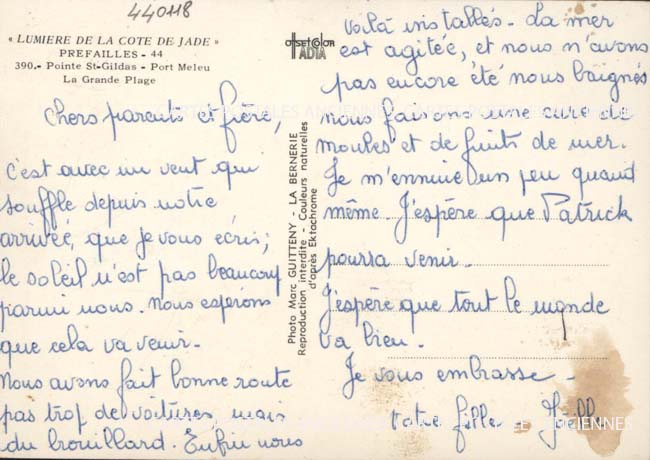 440118
« LUMIERE DE LA COTE DE JADE »
PREFAILLES - 44
390.- Pointe St-Gildas - Port Meleu
La Grande Plage
offset color
IADIA
Chers parents et frère,
c'est avec un vent qui
souffle depuis notre
arrivée, que je vous écris;
le soleil n'est pas beaucoup
parmi nous. Nous espérons
que cela va venir.
Nous avons fait bonne route
pas trop de voitures, mais
du brouillard. Enfin nous
Photo Marc GUITTENY - LA BERNERIE
Reproduction interdite - Couleurs naturelles
d'après Ektachrome
voilà installés. La mer
est agitée, et nous n'avons
pas encore été nous baignés
nous faisons une cure de
moules et de fruits de mer.
Je m'ennuie un peu quand
même J'espère que Patrick
pourra venir.
J'espère que tout le monde
va bien.
Je vous embrasse -
votre fille
CARTES POSTALES ANCIENNES